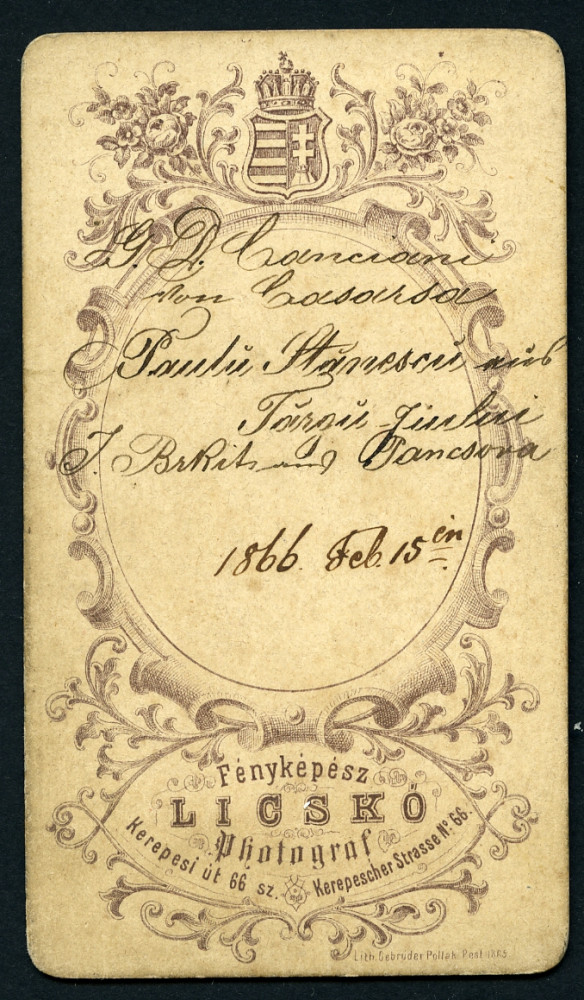 G. D. Canciani
von Casarsa
Paulu Stănescu aus
Târgu-Jiului
J. Brkit aus Pancsova
1866. Feb. 15 én
Fényképész
LICSKÓ
Photograf
Kerepesi út 66 sz. Kerepescher Strasse Nº 66.
Lith. Gebrüder Pollak Pest 1865